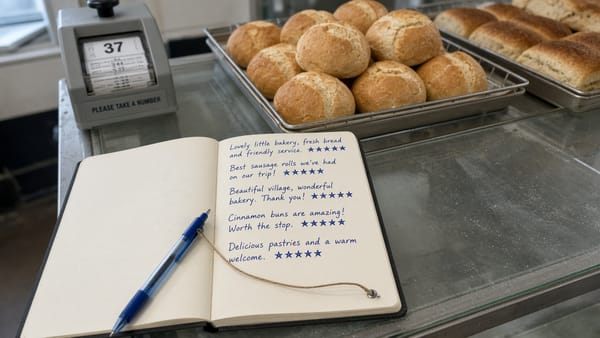 37
PLEASE TAKE A NUMBER
Lovely little bakery, fresh bread
and friendly service. ★★★★★
Best sausage rolls we've had
on our trip! ★★★★★
Beautiful village, wonderful
bakery. Thank you! ★★★★★
Cinnamon buns are amazing!
Worth the stop. ★★★★★
Delicious pastries and a warm
welcome. ★★★★★